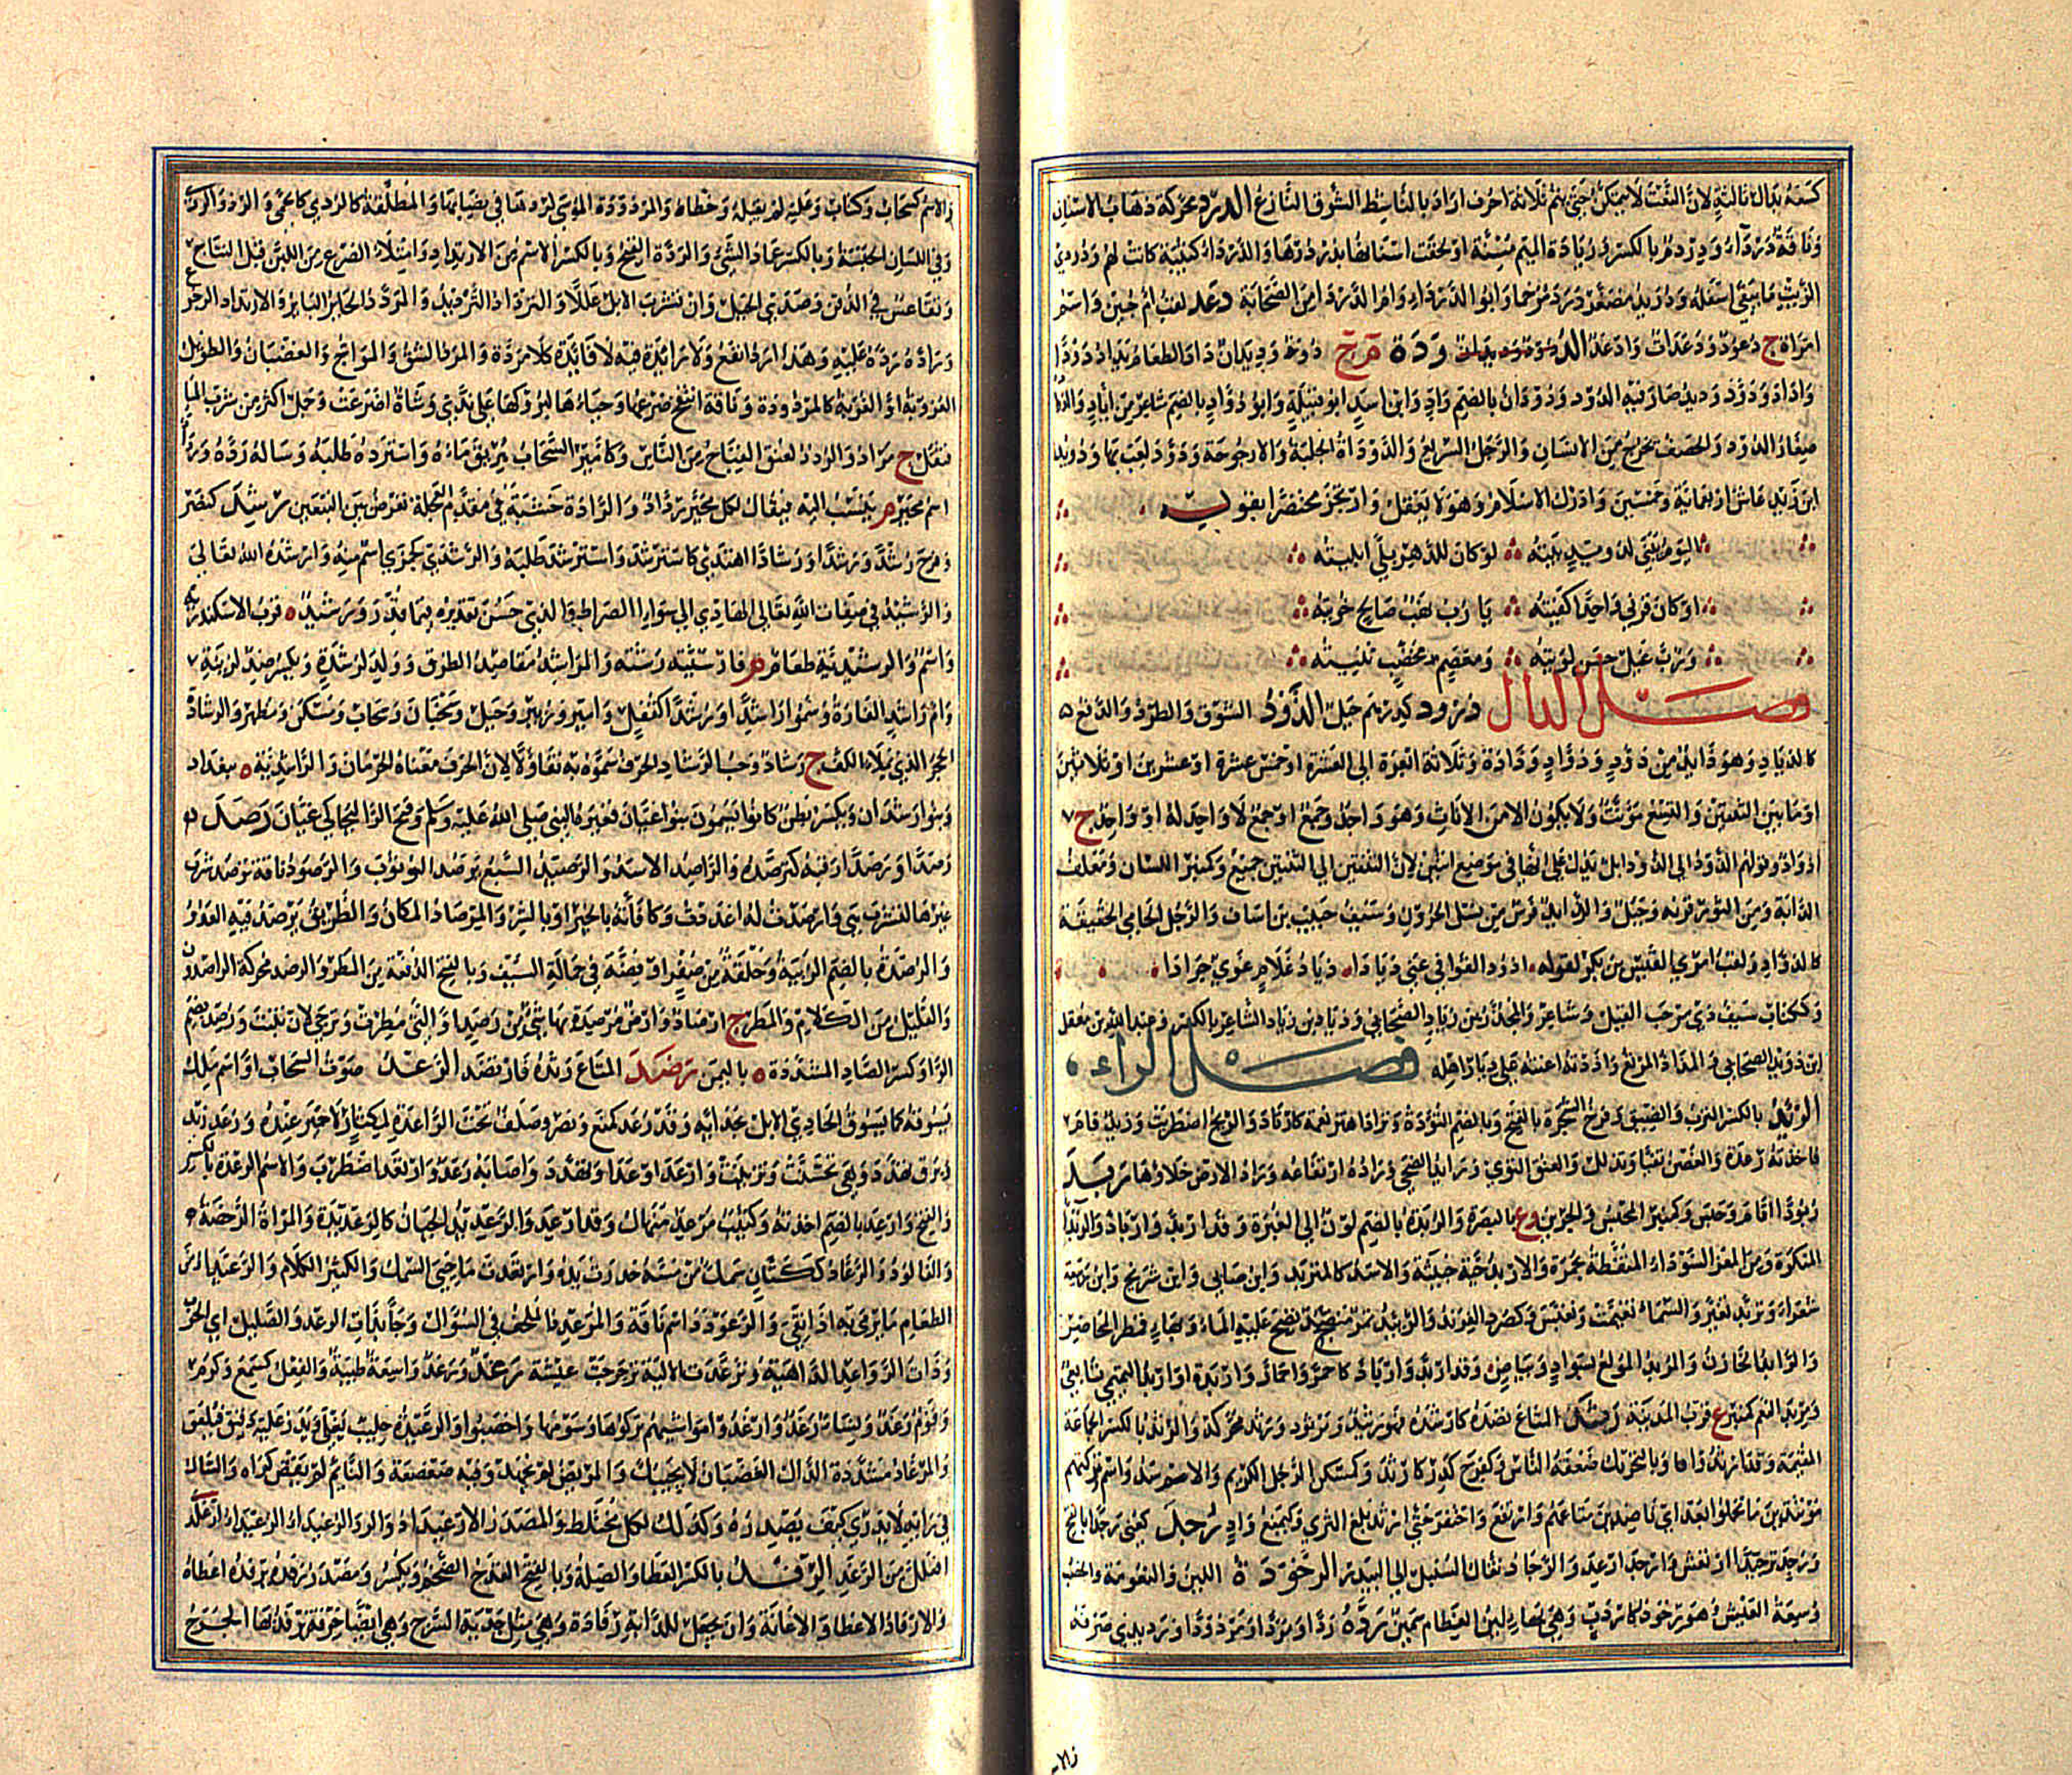 لان النعت لا يمكن ثلاثة احرف اراد بالناشط الشوق النازع الدرد محركة ذهاب الاسنان
وناقة درداء ودردم بالكسر وزيادة الميم مسنة او لحقت اسنانها بدردرها والدرداء كتيبة كانت لهم ودردي
الزيت ما يبقى اسفله ودريد مصغر درد مرخما وابو الدرداء وام الدرداء من الصحابة دعد لقب ام حبين واسم
امراة ج دعود ودعدات وادعد الدودة م ج دود وديدان داد الطعام يداد دودا
واداد ودود وديد صار فيه الدود ودودان بالضم واد وابن اسد ابو قبيلة وابو دواد بالضم شاعر من اياد
صغار الدود والخضف يخرج من الانسان والرجل السريع والدوداة الجلبة والارجوحة ودود لعب بها ودويد
ابن زيد عاش اربعمائة وخمسين وادرك الاسلام وهو لا يعقل وارتجز محتضرا بقوله
اليوم يبنى لدويد بيته لو كان للدهر بلى ابليته
او كان قرني واحدا كفيته يا رب نهب صالح حويته
ورب غيل حسن لويته ومعصم مخضب ثنيته
فصل الذال ذرود كدرهم جبل الذود السوق والطرد والدفع
كالذياد وهو ذائد من ذود وذواد وذادة وثلاثة ابعرة الى العشرة او خمس عشرة او عشرين او ثلاثين
او ما بين الثنتين والتسع مؤنث ولا يكون الا من الاناث وهو واحد وجمع او جمع لا واحد له او واحد ج
اذواد وقولهم الذود الى الذود ابل يدل على انها في موضع اثنتين لان الثنتين الى الثنتين جمع وكمنبر اللسان ومعتلف
الدابة ومن الثور قرنه وجبل والذائد فرس من نسل الحرون وسيف خبيب بن اساف والرجل الحامي الحقيقة
كالذواد ولقب امرئ القيس بن بكر لقوله اذود القوافي عني ذيادا ذياد غلام غوي جرادا
وككتاب سيف ذي مرحب القيل وشاعر والمجذر بن ذياد الصحابي وذياد بن زياد الشاعر بالكسر وعبد الله بن مغفل
ابن ذويد الصحابي والمذاد المرتع واذدته اعنته على ذياد اهله فصل الراء
الرئد بالكسر الترب والضيق وفرخ الشجرة بالفتح وبالضم التؤدة وتراد اهتز نعمة كارتاد والريح اضطربت وزيد قام
فاخذته رعدة والغصن تفيا وتذلل والعنق التوى ورائد الضحى ورادة ارتفاعه وراد الارض خلاؤها ربد
ربودا اقام وحبس وكمنبر المحبس والجرين وع بالبصرة والربدة بالضم لون الى الغبرة وقد اربد وارباد والربداء
المنكرة ومن المعز السوداء المنقطة بحمرة والاربد حية خبيثة والاسد كالمتربد وابن ضابئ وابن شريح وابن ربيعة
شعراء وتربد تغير والسماء تغيمت وتعبس وكصرد الفرند والربيد تمر منضد نضح عليه الماء
والرابد الخازن والمربد المولع بسواد وبياض وقد اربد وارباد كاحمر واحمار واربدة او اربد التميمي تابعي
ومربد النعم كمنبر ع قرب المدينة رثد المتاع نضده كارتثده فهو رثيد ومرثود ورثد محركة والرثد بالكسر الجماعة
المقيمة وقد ارثدوا وبالتحريك ضعفة الناس وكفرح كدر كارثد وكمسكن الرجل الكريم والاسد واسم وتركتهم
مرتثدين ما تحملوا بعد اي ناضدين متاعهم وارتفع واحتفر حتى ارثد بلغ الثرى وكيمنع واد رجد كعني رجدا بالفتح
ورجد ترجيدا ارتعش وارجد ارعد والرجاد نقال السنبل الى البيدر الرخودة اللين والنعومة والخصب
وسعة العيش وهو رخود كاردب وهي بهاء لين العظام سمين رده ردا ومردا ومردودا ورديدى صرفه
والاسم كسحاب وكتاب وعليه لم يقبله وخطاه والمردودة الموسى لردها في نصابها والمطلقة كالردى كالحمى والرد الردي
وفي اللسان الحبسة وبالكسر عماد الشيء والردة القبح وبالكسر الاسم من الارتداد وامتلاء الضرع من اللبن قبل النتاج
وتقاعس في الذقن وصدى الجبل وان تشرب الابل عللا والترداد الترديد والمردد الحائر البائر والارتداد الرجوع
وراده رده عليه وهذا ارد انفع ولا رادة فيه لا فائدة كلا مردة والمرد الشبق والمواج والغضبان والطويل
العزوبة او الغربة كالمردودة وناقة انتفخ ضرعها وحياءها لبروكها على ندى وشاة اضرعت وجمل اكثر من شرب الماء
فثقل ج مراد والردد لعنق القباح من الناس وكامير السحاب يريق ماءه واسترده طلبه وساله رده
اسم مجبر م ينسب اليه فيقال لكل مجبر رداد والرادة خشبة في مقدم العجلة تعرض بين النبعين رشد كنصر
وفرح رشدا ورشدا ورشادا اهتدى كاسترشد واسترشد طلبه والرشدى كجمزى اسم منه وارشده الله تعالى
والرشيد في صفات الله تعالى الهادي الى سواء الصراط والذي حسن تقديره فيما قدر ورشيد ة قرب الاسكندرية
واسم والرشيدية طعام م فارسيته رشته والمراشد مقاصد الطرق وولد لرشدة ويكسر ضد لزنية
وام راشد الفارة وسموا راشدا ورشدا كقفل وامير وزبير وجبل وسحبان وسحاب ومسكن ومظهر والرشادة
الحجر الذي يملا الكف ج رشاد وحب الرشاد الحرف سموه به تفاؤلا لان الحرف معناه الحرمان والراشدية ة ببغداد
وبنو رشدان ويكسر بطن كانوا يسمون بنو غيان فغيره النبي صلى الله عليه وسلم وفتح الراء ليحاكي غيان رصده
رصدا ورصدا رقبه كترصده والراصد الاسد والرصيد السبع يرصد الوثوب والرصود ناقة ترصد شرب
غيرها لتشرب هي وارصدت له اعددت وكافأته بالخير او بالشر والمرصاد المكان والطريق يرصد فيه العدو
والرصدة بالضم الزبية وحلقة من صفر او فضة في حمالة السيف وبالفتح الدفعة من المطر والرصد محركة الراصدون
والقليل من الكلا والمطر ج ارصاد وارض مرصدة بها شيء من رصد او التي مطرت وترجى لان تنبت ورصد بضم
الراء وكسر الصاد المشددة ة باليمن رضد المتاع رثده فارتضد الرعد صوت السحاب او اسم ملك
يسوقه كما يسوق الحادي الابل بحدائه وقد رعد كمنع ونصر وصلف تحت الراعدة لمكثار لا خير عنده ورعد زيد
وبرق تهدد وهي تحسنت وتزينت وارعد اوعد او تهدد واصابه رعد وارتعد اضطرب والاسم الرعدة بالكسر
والفتح وارعد بالضم اخذته وكثيب مرعد منهال وقد ارعد والرعديد الجبان كالرعديدة والمراة الرخصة
والفالوذ والرعاد ككتان سمك من مسه خدرت يده وارتعدت ما حيي السمك والكثير الكلام والرعيداء من
الطعام ما يرمى به اذا نقي والرعودد اسم ناقة والمرعدد الملحف في السؤال وجاء بذات الرعد والصليل اي الحرب
وذات الرواعد الداهية وترعددت الالية ترجرجت عيشة رغد ورغد واسعة طيبة والفعل كسمع وكرم
وقوم رغد ونساء رغد وارغدوا مواشيهم تركوها وسومها واخصبوا والرغيدة حليب يغلى ويذر عليه دقيق فيلعق
والمرغاد مشددة الدال الغضبان لا يجيبك والمريض لم يجهد وفيه ضعضعة والنائم لم يقض كراه والشاك
في رايه لا يدري كيف يصدره وكذلك لكل مختلط والمصدر الارغيداد والرغيداء
افعل من الرغد الرفد بالكسر العطاء والصلة وبالفتح القدح الضخم ويكسر ومصدر رفده يرفده اعطاه
والارفاد الاعطاء والاعانة وان تجعل للدابة رفادة وهي مثل جدية السرج وهي ايضا خرقة يرفد بها الجرح